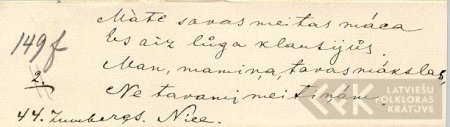 Māte savas meitas māca
149f
Es aiz lūga klausijūs.
Man, mamiņa, tavas mākslas,
2
Ne tavami meitiņām.
44. Zumbergs. Nīce.
LATVIEŠU
FOLKLORAS
KRĀTUVE